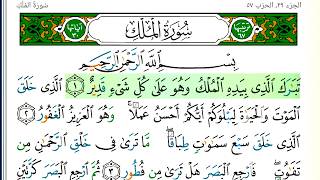 الجزء ٢٩، الحزب ٥٧ سورة الملك
سُورَةُ الْمُلْكِ
بِسْمِ اللَّهِ الرَّحْمَٰنِ الرَّحِيمِ
تَبَٰرَكَ الَّذِي بِيَدِهِ الْمُلْكُ وَهُوَ عَلَىٰ كُلِّ شَيْءٍ قَدِيرٌ ١ الَّذِي خَلَقَ
الْمَوْتَ وَالْحَيَوٰةَ لِيَبْلُوَكُمْ أَيُّكُمْ أَحْسَنُ عَمَلًا ۚ وَهُوَ الْعَزِيزُ الْغَفُورُ ٢
الَّذِي خَلَقَ سَبْعَ سَمَٰوَٰتٍ طِبَاقًا ۖ مَّا تَرَىٰ فِي خَلْقِ الرَّحْمَٰنِ مِن
تَفَٰوُتٍ ۖ فَارْجِعِ الْبَصَرَ هَلْ تَرَىٰ مِن فُطُورٍ ٣ ثُمَّ ارْجِعِ الْبَصَرَ كَرَّتَيْنِ